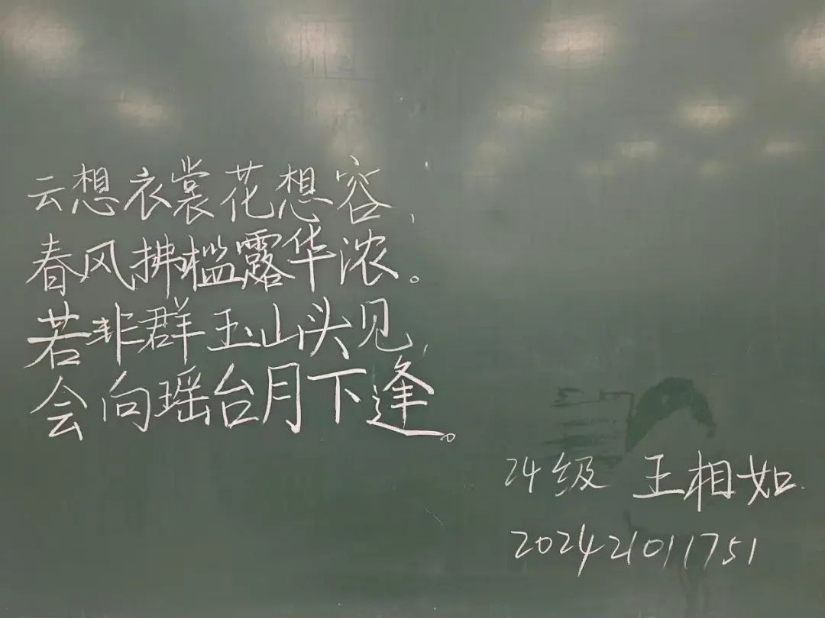 云想衣裳花想容,
春风拂槛露华浓。
若非群玉山头见,
会向瑶台月下逢。
24级 王相如
202421011751